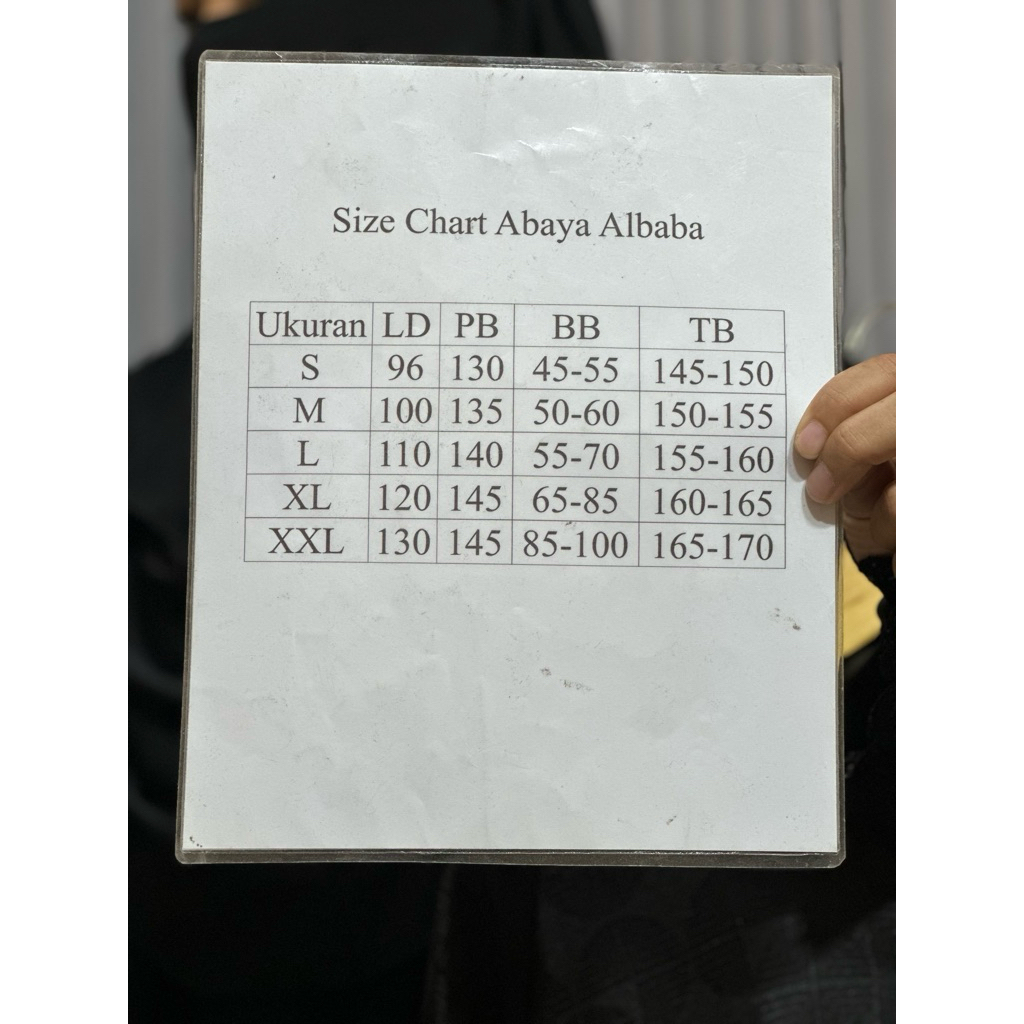 Size Chart Abaya Albaba
Ukuran LD PB BB TB
S 96 130 45-55 145-150
M 100 135 50-60 150-155
L 110 140 55-70 155-160
XL 120 145 65-85 160-165
XXL 130 145 85-100 165-170